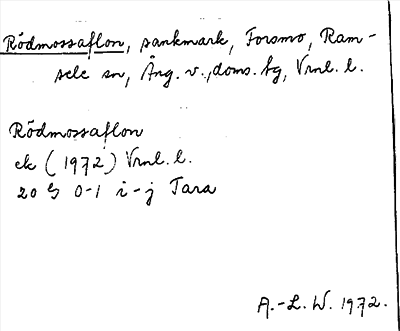 Rödmossaflon, sankmark, Forsmo, Ram-
sele sn, Ång. v., doms. sg, Vrnl. l.
Rödmossaflon
ek (1972) Vrnl. l.
20 G 0-1 i-j Tara
A.-L. W. 1972.